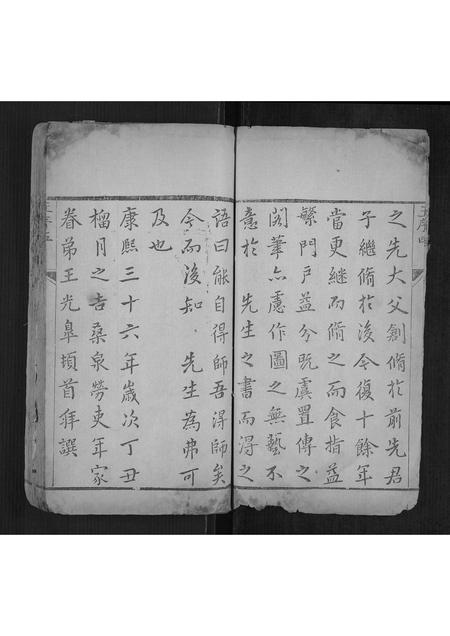 之先大父創脩於前先君
子繼脩於後今復十餘年
當更繼而脩之而食指益
繁門戶益分既虞置傳之
閣筆亦慮作圖之無藝不
意於先生之書而得之
語曰能自得師吾得師矣
今而後知先生為弗可
及也
康熙三十六年歲次丁丑
榴月之吉桑泉勞吏年家
眷弟王光臯頓首拜譔